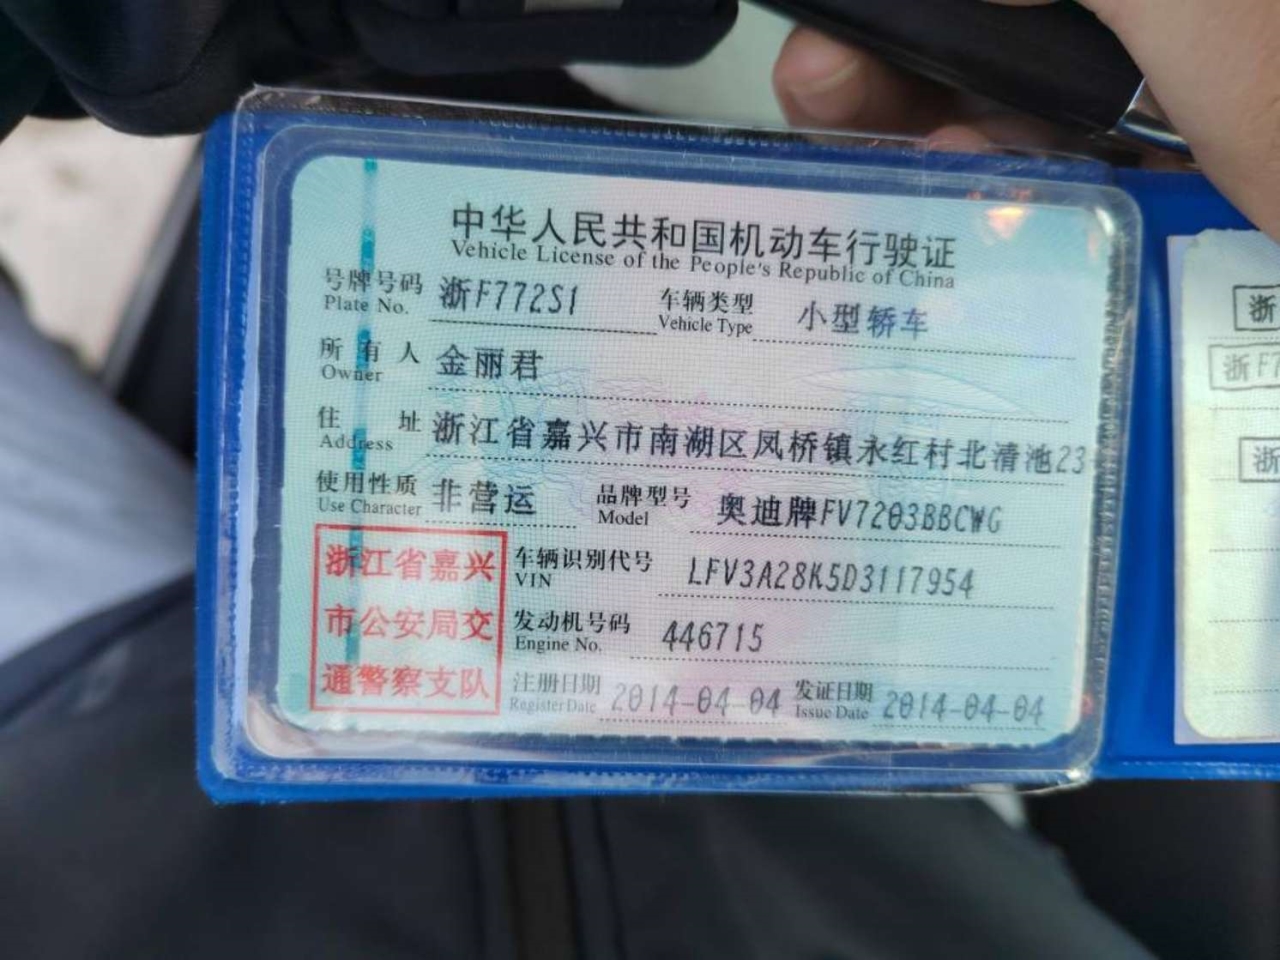 中华人民共和国机动车行驶证
Vehicle License of the People's Republic of China
号牌号码 浙F772S1 车辆类型 小型轿车
Plate No. Vehicle Type
所有人 金丽君
Owner
住址 浙江省嘉兴市南湖区凤桥镇永红村北清池23
Address
使用性质 非营运 品牌型号 奥迪牌FV7203BBCWG
Use Character Model
浙江省嘉兴
市公安局交
通警察支队
车辆识别代号 LFV3A28K5D3117954
VIN
发动机号码 446715
Engine No.
注册日期 2014-04-04 发证日期 2014-04-04
Register Date Issue Date
浙
浙F7
浙